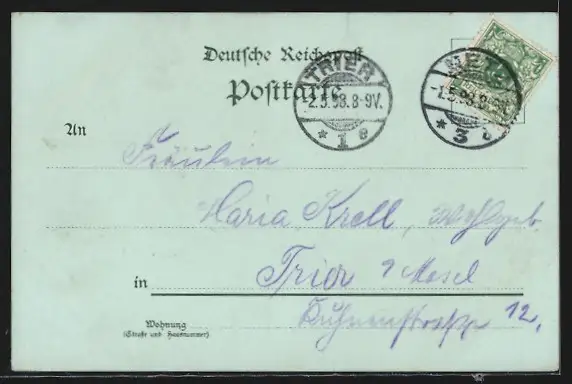 Deutsche Reichspost
Postkarte
TRIER
-2.5.98.8-9V.
* 1 e
-1.5.98.8-9V.
* 3
An
Fräulein
Maria Krell, Wohlgeb.
in Trier a/Mosel
12.
Wohnung
(Straße und Hausnummer)